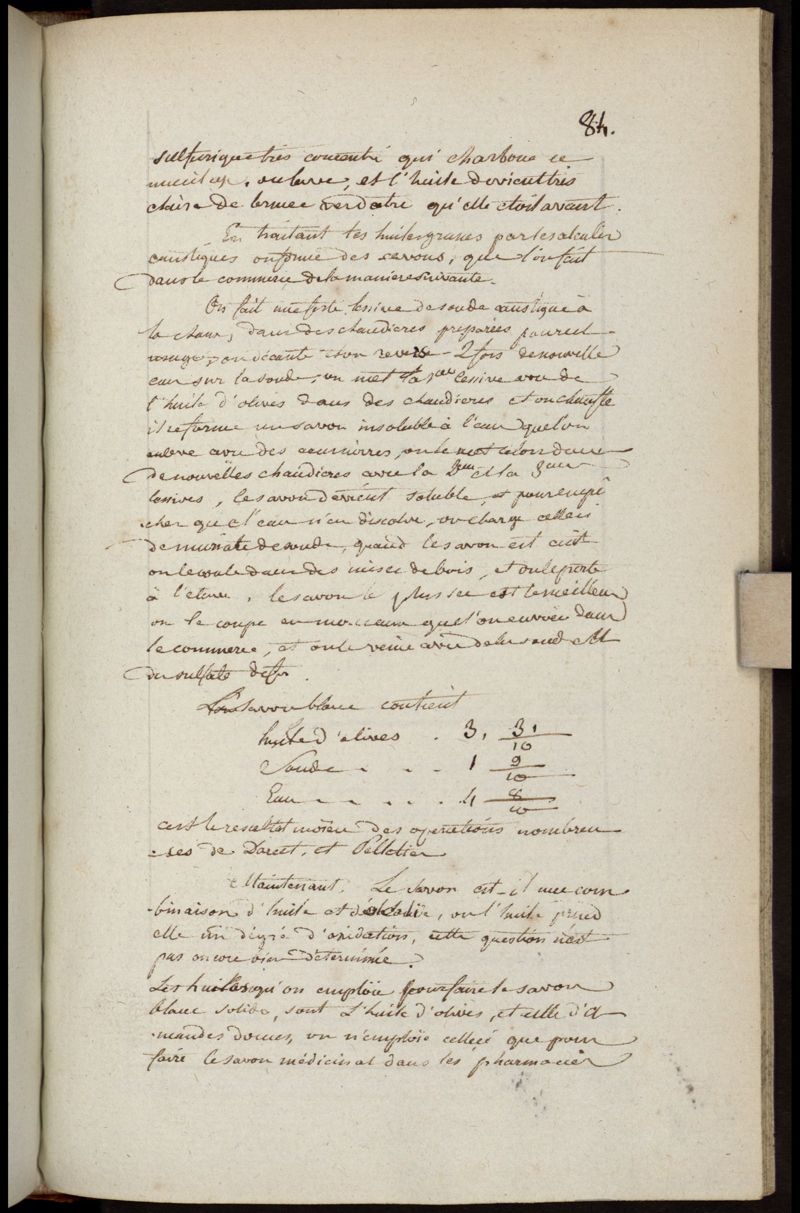 84.
sulfurique très concentré qui charbone ce
mucilage, on lave, et l'huile devient très
claire de brunee verdatre qu'elle etoit avant.
En traitant les huiles grasses par les alcalis
caustiques on forme des savons, que l'on fait
dans le commerce de la maniere suivante.
On fait une forte lessive de soude caustique à
la chaux, dans des chaudieres preparées pour cet
usage, on décante et on reverse 2 fois de nouvelle
eau sur la soude, on met la 1ere lessive avec de
l'huile d'olives dans des chaudieres et on chauffe
il se forme un savon insoluble à l'eau que l'on
enleve avec des ecumoirres, on le met alors dans
de nouvelles chaudieres avec la 2eme et la 3eme
lessives, le savon devient soluble, et pour empê
cher que l'eau n'en disolve, on charge celle ci
de muriate de soude, quand le savon est cuit
on le coule dans des mises de bois, et on le porte
à l'etuve, le savon le plus sec est le meilleur
on le coupe en morceaux que l'on envoie dans
le commerce, et on le veine avec de la soude et
du sulfate de fer.
Le savon blanc contient
huile d'olives . 3, 3,/10
Soude . . . 1 9/10
Eau . . . . 4 8/10
c'est le resultat moien des operations nombreu
ses de Darcet, et Pelletier
Maintenant. Le savon est-il une com
binaison d'huile et d'alcalie, ou l'huile prend
elle un dégré d'oxidation, cette question n'est
pas encore bien determinée.
Les huiles qu'on emploie pour faire le savon
blanc solide, sont l'huile d'olives, et celle d'a
mandes douces, on n'emploie celle ci que pour
faire le savon médicinal dans les pharmacies